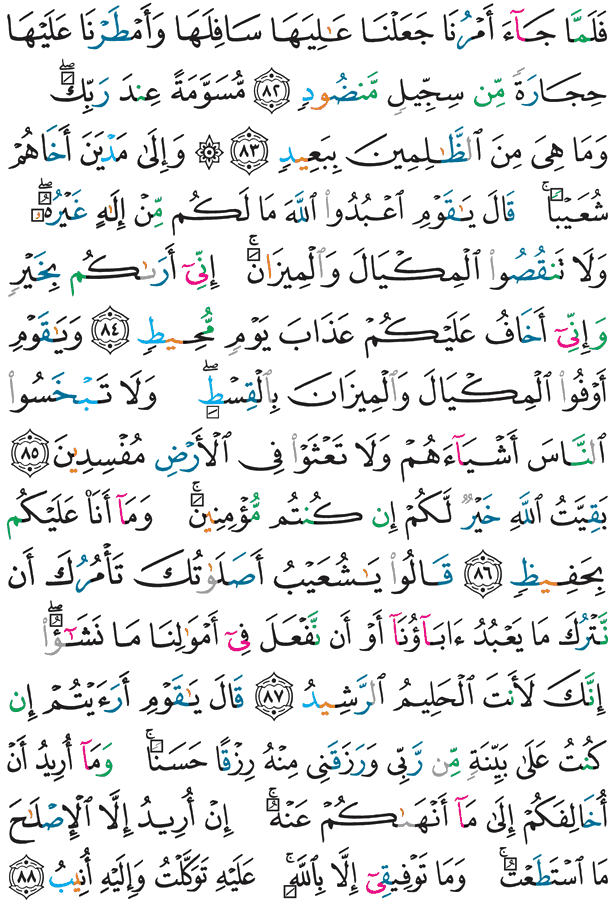 فَلَمَّا جَآءَ أَمْرُنَا جَعَلْنَا عَـٰلِيَهَا سَافِلَهَا وَأَمْطَرْنَا عَلَيْهَا
حِجَارَةً مِّن سِجِّيلٍ مَّنضُودٍ ۝٨٢ مُّسَوَّمَةً عِندَ رَبِّكَ ۖ
وَمَا هِىَ مِنَ ٱلظَّـٰلِمِينَ بِبَعِيدٍ ۝٨٣ ۞ وَإِلَىٰ مَدْيَنَ أَخَاهُمْ
شُعَيْبًا ۚ قَالَ يَـٰقَوْمِ ٱعْبُدُوا۟ ٱللَّهَ مَا لَكُم مِّنْ إِلَـٰهٍ غَيْرُهُۥ ۖ
وَلَا تَنقُصُوا۟ ٱلْمِكْيَالَ وَٱلْمِيزَانَ ۚ إِنِّىٓ أَرَىٰكُم بِخَيْرٍ
وَإِنِّىٓ أَخَافُ عَلَيْكُمْ عَذَابَ يَوْمٍ مُّحِيطٍ ۝٨٤ وَيَـٰقَوْمِ
أَوْفُوا۟ ٱلْمِكْيَالَ وَٱلْمِيزَانَ بِٱلْقِسْطِ ۖ وَلَا تَبْخَسُوا۟
ٱلنَّاسَ أَشْيَآءَهُمْ وَلَا تَعْثَوْا۟ فِى ٱلْأَرْضِ مُفْسِدِينَ ۝٨٥
بَقِيَّتُ ٱللَّهِ خَيْرٌ لَّكُمْ إِن كُنتُم مُّؤْمِنِينَ ۚ وَمَآ أَنَا۠ عَلَيْكُم
بِحَفِيظٍ ۝٨٦ قَالُوا۟ يَـٰشُعَيْبُ أَصَلَوٰتُكَ تَأْمُرُكَ أَن
نَّتْرُكَ مَا يَعْبُدُ ءَابَآؤُنَآ أَوْ أَن نَّفْعَلَ فِىٓ أَمْوَٰلِنَا مَا نَشَـٰٓؤُا۟ ۖ
إِنَّكَ لَأَنتَ ٱلْحَلِيمُ ٱلرَّشِيدُ ۝٨٧ قَالَ يَـٰقَوْمِ أَرَءَيْتُمْ إِن
كُنتُ عَلَىٰ بَيِّنَةٍ مِّن رَّبِّى وَرَزَقَنِى مِنْهُ رِزْقًا حَسَنًا ۚ وَمَآ أُرِيدُ أَنْ
أُخَالِفَكُمْ إِلَىٰ مَآ أَنْهَىٰكُمْ عَنْهُ ۚ إِنْ أُرِيدُ إِلَّا ٱلْإِصْلَـٰحَ
مَا ٱسْتَطَعْتُ ۚ وَمَا تَوْفِيقِىٓ إِلَّا بِٱللَّهِ ۚ عَلَيْهِ تَوَكَّلْتُ وَإِلَيْهِ أُنِيبُ ۝٨٨